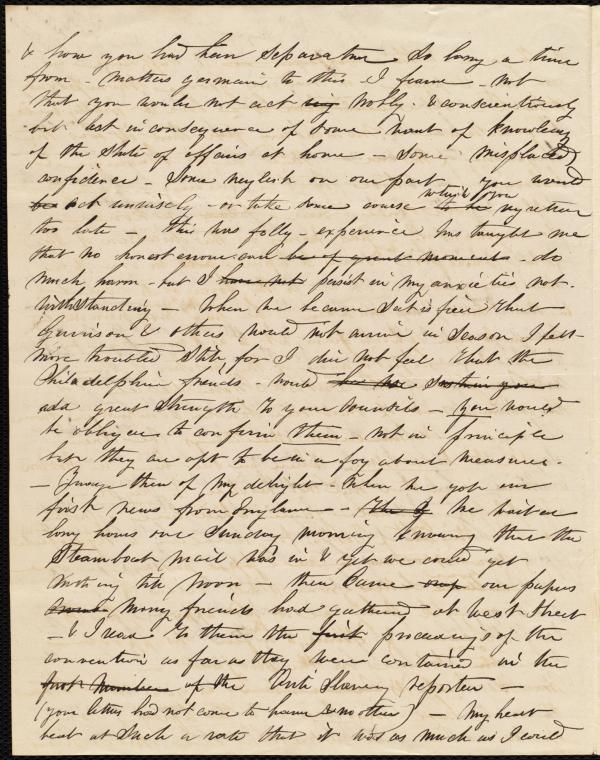 & how you had been separated so long a time
from - matters germain to this I fear - not
that you would not act nobly & conscientiously
but lest in consequence of some want of knowledge
of the state of affairs at home - some misplaced
confidence - some neglect on our part - you would
act unwisely - or take some course which you regret
too late - this was folly - experience has taught me
that no honest error can be of great moment - do
much harm - but I have not persist in my anxieties not-
withstanding - When we became satisfied that
Garrison & others would not arrive in season I felt
more troubled still for I did not feel that the
Philadelphia friends - would
add great strength to your councils - you would
be obliged to confirm them - not in principle
but they are apt to be in a fog about measures -
- Imagine then of my delight - when we got our
first news from England - We waited
long hours one Sunday morning knowing that the
Steamboat mail was in & yet we could get
nothing till Noon - then came our papers
many friends had gathered at West Street
- & I read to them the first proceedings of the
convention as far as they were contained in the
first numbers of the Anti Slavery reporter -
(your letters had not come to hand) - My heart
beat at such a rate that it was as much as I could